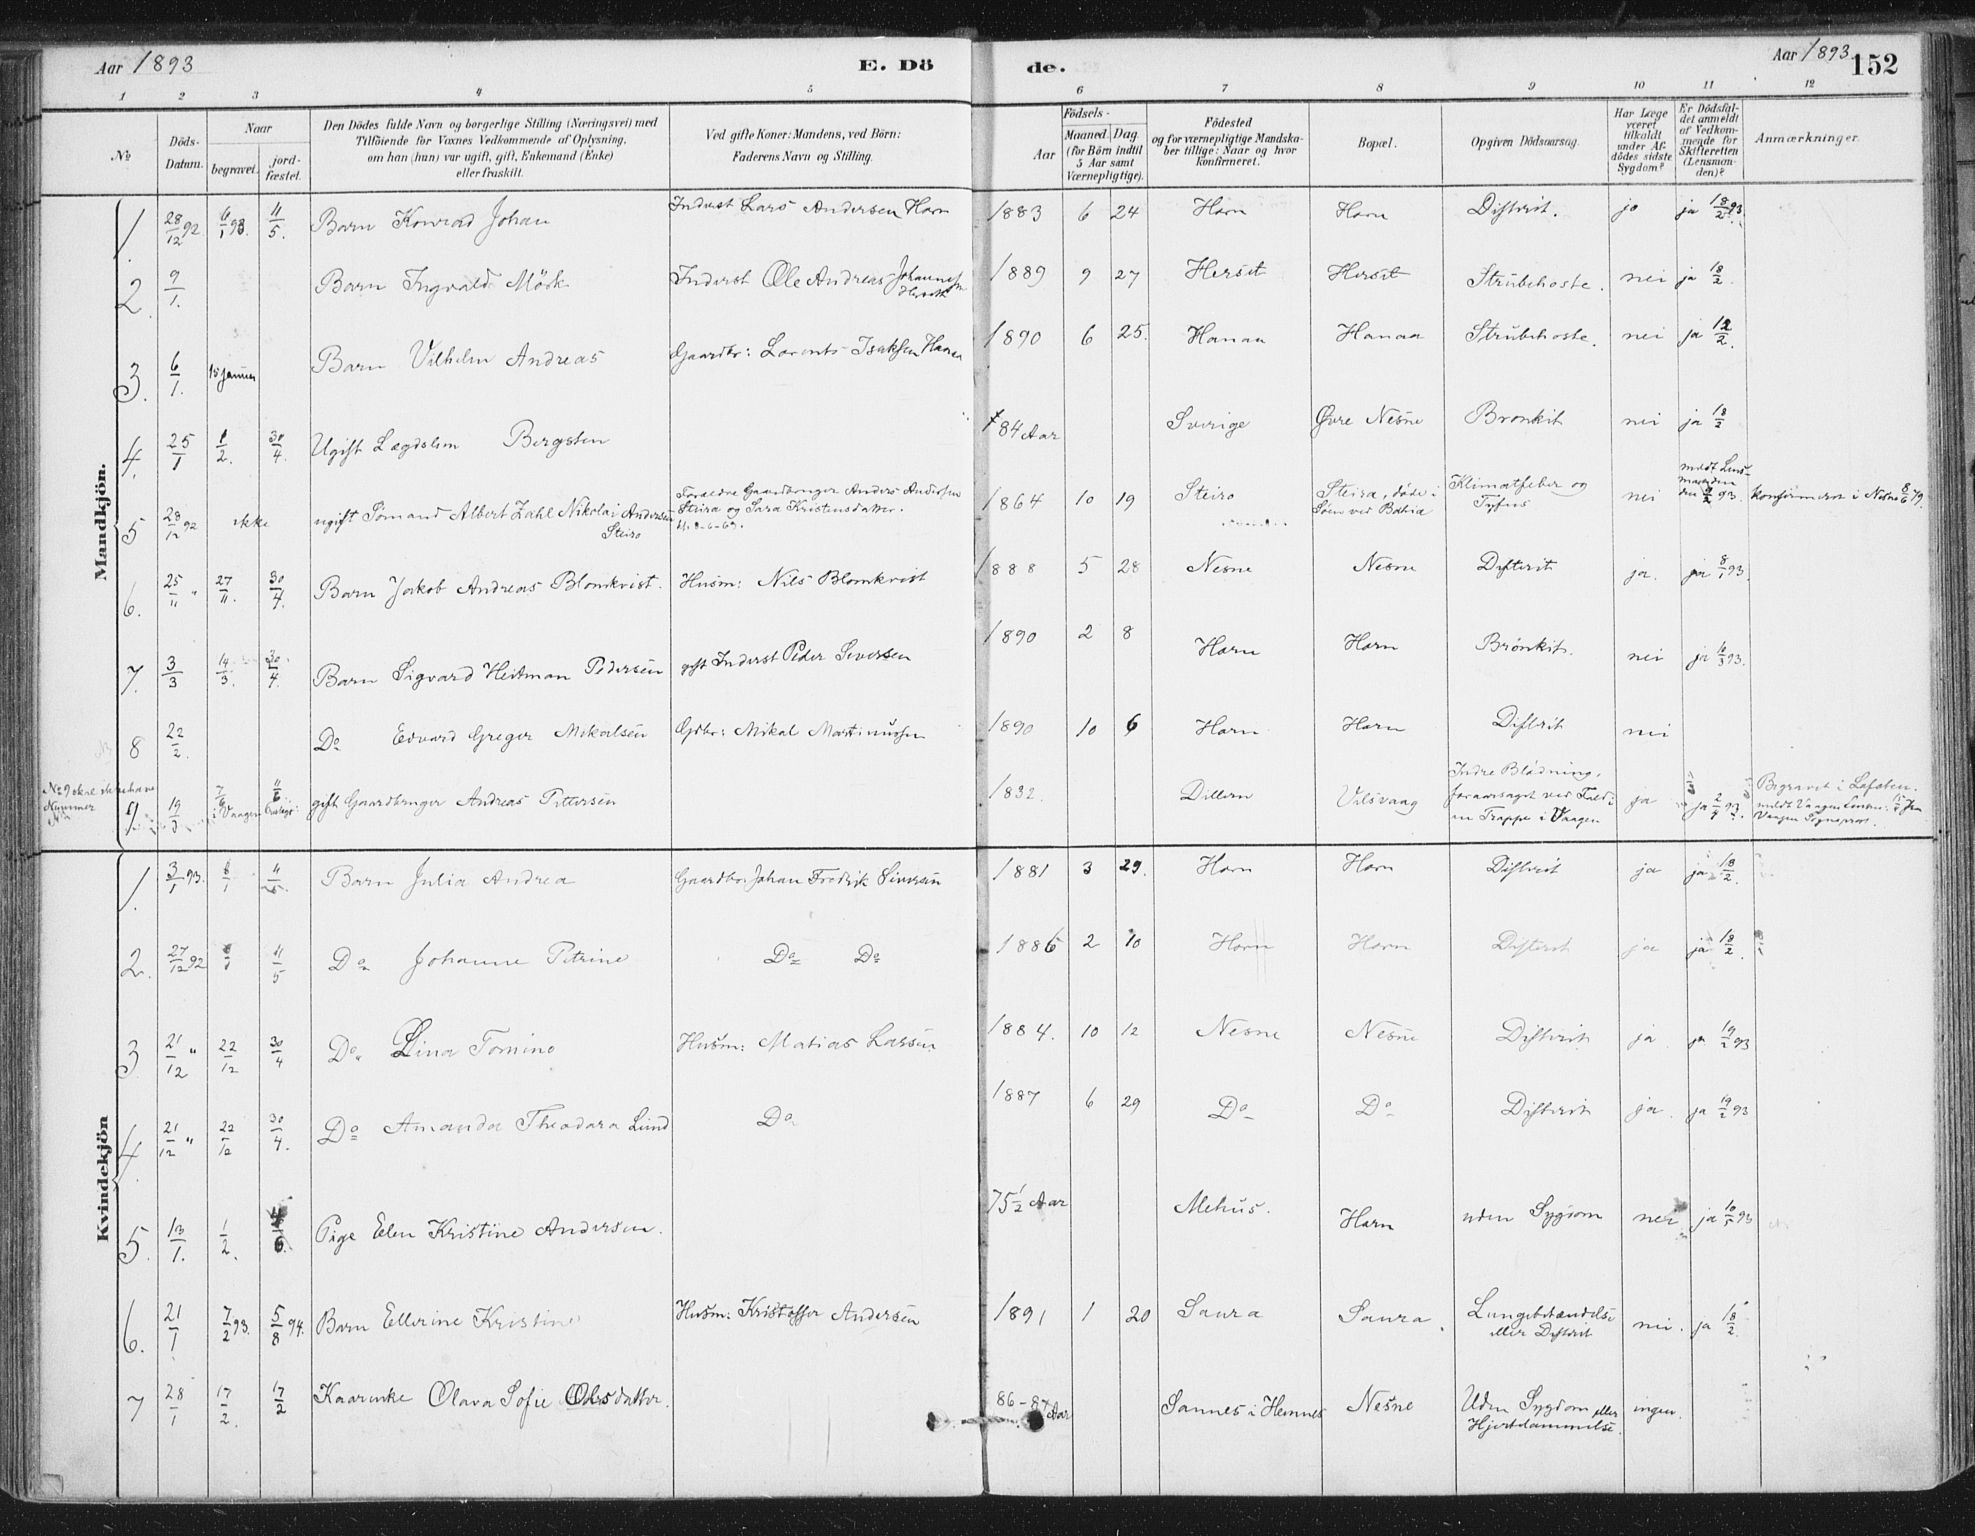 Aar 1893
E. Dö
de.
Aar 1893.
152
1 2 3 4 5 6 7 8 9 10 11 12
No
Döds-
Datum.
Naar
begravet.
jord-
fæstet.
Den Dödes fulde Navn og borgerlige Stilling (Næringsvei) med
Tilföiende for Voxnes Vedkommende af Oplysning,
om han (hun) var ugift, gift, Enkemand (Enke)
eller fraskilt.
Ved gifte Koner: Mandens, ved Börn:
Faderens Navn og Stilling.
Födsels-
Aar
Maaned. Dag
(for Börn indtil
5 Aar samt
Værnepligtige).
Födested
og for værnepligtige Mandska-
ber tillige: Naar og hvor
konfirmeret.
Bopæl.
Opgiven Dödsaarsag.
Har Læge
været
tilkaldt
under Af-
dödes sidste
Sygdom?
Er Dödsfal-
det anmeldt
af Vedkom-
mende for
Skifteretten
(Lensman-
den)?
Anmærkninger.
Mandkjön.
1. 28/12 92. 6/1 93. 4/5. Barn Konrad Johan Inderst Lars Andersen Horn 1883 6 24 Horn Horn Difterit. ja ja 18/2 93.
2. 9/1. Barn Ingvald Mörk Inderst Ole Andreas 1889 9 27 Herset Herset Strubehoste. nei ja 18/2.
3. 6/1. 15 januar Barn Vilhelm Andreas Gaardbr: Lorents Isaksen Hanaa 1890 6 25. Hanaa Hanaa Strubehoste. nei ja 12/2.
4. 25/1 1/2. 30/4. Ugift Lægdslem Bergsten 84 Aar Sverige Øvre Nesne Bronkit nei ja 18/2
5 28/12 92 ikke ugift Sömand Albert Zahl Nikolai Andersen
Steiro
Forældre Gaardbruger Anders Andersen
Steira og Sara Kristensdatter.
1864 10 19 Steiro Steira, döde i
Söen ved Bahia
Klimatfeber og
Tyfus
nei
meldt Lens-
manden
konfirmeret i Nesne 8/6 79.
6. 25/11 " 27/11. 30/4. Barn Jakob Andreas Blomkvist. Husm: Nils Blomkvist 1888 5 28 Nesne Nesne Difterit ja. ja 8/1 93.
7. 3/3 14/3. 30/4. Barn Sigvard Heitman Pedersen gift Inderst Peder Seversen 1890 2 8 Horn Horn Bronkit. nei ja 16/3 93.
8 22/2. Do Edvard Greger Mikalsen Gdbr: Mikal Martinussen 1890 10 6 Horn Horn Difterit nei
No 9 skal ikke have
Nummer
9. 19/3 7/6 i Vaagen gift Gaardbruger Andreas Pettersen 1832. Dillern Vilsvaag
Indre Blödning,
foraarsaget ved Fald i
en Trappe i Vaagen
ja ja 2/4 93.
Begravet i Lofoten.
Vaagen Sogneprest.
Kvindekjön
1. 3/1 93. 8/1 4/5. Barn Julia Andrea Gaardbr: Johan Fredrik Siversen 1881 3 29. Horn Horn Difterit ja ja 18/2.
2. 27/12 92 4/5 Do Johanne Petrine Do Do 1886 2 10 Horn Horn Difterit ja ja 18/2.
3 21/12 " 22/12 30/4 Do Lina Tomine Husm: Matias Larsen 1884. 10 12 Nesne Nesne Difterit ja. ja 19/2 93
4. 21/12 " 22/12 30/4. Do Amanda Theodora Lind Do 1887 6 29 Do Do Difterit ja. ja 19/2 93
5. 13/1. 1/2. 4/6. Pige Elen Kristine Andersen. 75 1/2 Aar Mehus. Horn uden Sygdom nei ja 10/5 93
6. 21/1 7/2 93. 5/8 94. Barn Ellerine Kristine Husm: Kristoffer Andersen 1891 1 20 Saura Saura. Lungebetændelse
eller Difterit
nei. ja 18/2.
7 28/1 17/2. 17/2 Kaarenke Olava Sofie Olesdatter. 86-87 Aar Sannes i Hemnes Nesne Uden Sygdom eller
Hjertelammelse.
ingen.